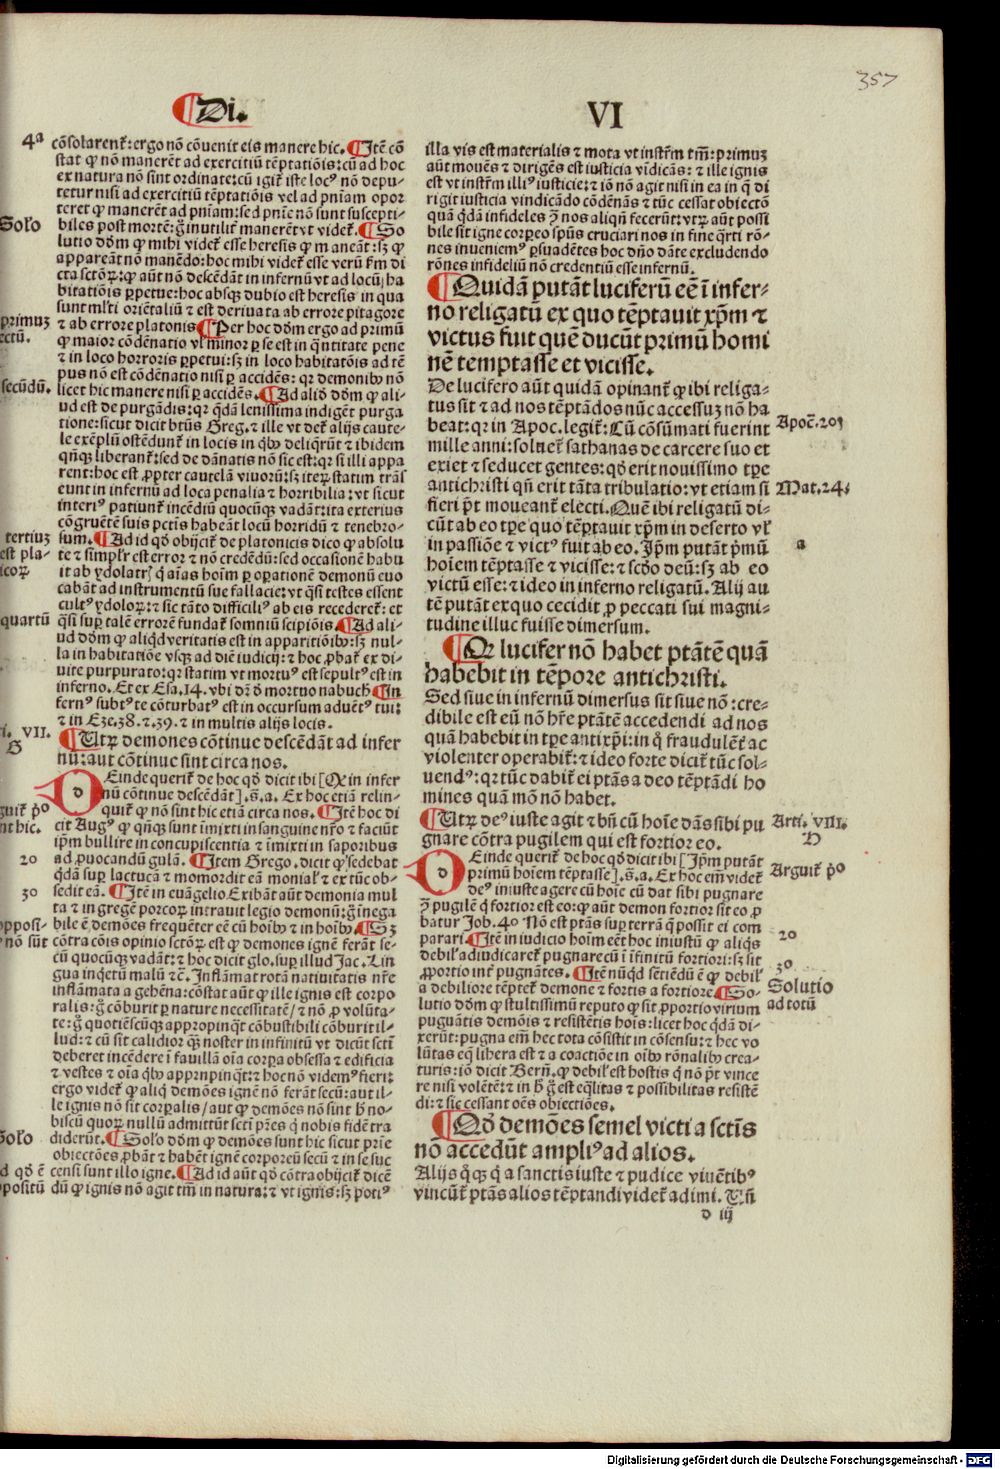 357
Di.
VI
4ª
cōsolarent᷑: ergo nō cōuenit eis manere hic. ¶Itē cō
stat ꝙ nō manerēt ad exercitiū tēptatiōis: cū ad hoc
ex natura nō sint ordinate: cū igit᷑ iste locꝰ nō depu-
tetur nisi ad exercitiū tēptatiōis vel ad pniam opor
teret ꝙ manerēt ad pniam: sed pnīe nō sunt suscepti-
biles post mortē: g̊ inutilit᷑ manerēt vt videt᷑. ¶So
Solo
lutio dōm ꝙ mihi videt᷑ esse heresis ꝙ maneāt: sꝫ ꝙ
appareāt nō manēdo: hoc mihi videt᷑ esse verū ẜm di
cta sctōꝝ: ꝙ aūt nō descēdāt in infernū vt ad locū ha
bitatiōis ꝑpetue: hoc absqꝫ dubio est heresis in qua
sunt ml̄ti oriētaliū ⁊ est deriuata ab errore pitagore
⁊ ab errore platonis ¶Per hoc dōm ergo ad primū
primuꝫ
ectū.
ꝙ maior cōdēnatio vl̓ minor ꝑ se est in q̄ntitate pene
⁊ in loco horroris ꝑpetui: sꝫ in loco habitatōis ad tē
pus nō est cōdēnatio nisi ꝑ accidēs: qꝛ demonibꝰ nō
licet hic manere nisi ꝑ accidēs. ¶Ad aliō dōm ꝙ ali-
secūdū.
ud est de purgādis: qꝛ q̄dā lenissima indigēt purga
tione: sicut dicit btūs Greg. ⁊ ille vt det᷑ alijs caute-
le exēplū ostēdunt᷑ in locis in qͥbꝰ deliq̄rūt ⁊ ibidem
qn̄qꝫ liberant᷑: sed de dānatis nō sic est: qꝛ si illi appa
rent: hoc est ꝓpter cautelā viuoꝝ: sꝫ iteꝝ statim trās
eunt in infernū ad loca penalia ⁊ horribilia: vt sicut
interiꝰ patiunt᷑ incēdiū quocūqꝫ vadāt: ita exterius
cōgruēte suis pctīs habeāt locū horridū ⁊ tenebro-
sum. ¶Ad id qd̓ obijcit᷑ de platonicis dico ꝙ absolu
tertiuꝫ
est pla-
icoꝝ
te ⁊ simpl̓r est error ⁊ nō credēdū: sed occasionē habu
it ab ydolatrꝭ ꝙ aīas hoīm ꝑ operationē demonū euo
cabāt ad instrumentū sue fallacie: vt q̄si testes essent
cultꝰ ydoloꝝ: ⁊ sic tāto difficiliꝰ ab eis recederet᷑: et
q̄si suꝑ talē errorē fundat᷑ somniū scipiōis. ¶Ad ali-
quartū
ud dōm ꝙ aliqd̓ veritatis est in apparitiōibꝰ: sꝫ nul-
la in habitatiōe vsqꝫ ad diē iudicij: ⁊ hoc ꝓbat᷑ ex di-
uite purpurato: qꝛ statim vt mortuꝰ est sepultꝰ est in
inferno. Et ex Esa. 14. vbi dr̄ d̓ mortuo nabuch ¶In
fernꝰ subtꝰ te cōturbatꝰ est in occursum aduētꝰ tui:
⁊ in Eze. 38. ⁊ .39. ⁊ in multis alijs locis.
¶Utꝝ demones cōtinue descēdāt ad infer
i. VII.
nū: aut cōtinue sint circa nos.
Deinde querit᷑ de hoc qd̓ dicit ibi [Qꝛ in infer
nū cōtinue descēdāt]. s. a. Ex hoc etiā relin-
quit᷑ ꝙ nō sint hic etiā circa nos. ¶Itē hoc di
guit᷑ pͦ
nt hic.
cit Augꝰ ꝙ qn̄qꝫ sunt īmixti in sanguine nr̄o ⁊ faciūt
ip̄m bullire in concupiscentia ⁊ īmixti in saporibus
ad ꝓuocandū gulā. ¶Item Grego. dicit ꝙ sedebat
20
q̄dā suꝑ lactucā ⁊ momordit eā monial᷑ ⁊ ex tūc ob-
sedit eā. ¶Itē in euāgelio Exibāt aūt demonia mul
30
ta ⁊ in gregē porcoꝝ intrauit legio demonū: g̊ inega
bile ē demōes frequēter eē cū hoībꝰ ⁊ in hoībꝰ. ¶Sꝫ
opposi-
nō sūt
cōtra cōis opinio sctōꝝ est ꝙ demones ignē ferāt se-
cū quocūqꝫ vadāt: ⁊ hoc dicit glo. suꝑ illud Jac. Lin
gua inq̄etū malū ⁊c̄. Inflāmat rotā natiuitatis nr̄e
inflāmata a gehēna: cōstat aūt ꝙ ille ignis est corpo
ralis: g̊ cōburit ꝑ nature necessitatē / ⁊ nō ꝓ volūta-
te: g̊ quotiēscūqꝫ appropinqͣt cōbustibili cōburit il-
lud: ⁊ cū sit calidior qͣꝫ noster in infinitū vt dicūt sctī
deberet incēdere ī fauillā oīa corꝑa obsessa ⁊ edificia
⁊ vestes ⁊ oīa qͥbꝰ appropinqͣt: ⁊ hoc nō videmꝰ fieri:
ergo videt᷑ ꝙ aliqͥ demōes ignē nō ferāt secū: aut il-
le ignis nō sit corꝑalis / aut ꝙ demōes nō sint hͥ no-
biscū quoꝝ nullū admittūt sctī pr̄es qͥ nobis fidē tra
diderūt. ¶Solō dōm ꝙ demōes sunt hic sicut prīe
Solo
obiectōes ꝓbāt ⁊ habēt ignē corporeū secū ⁊ in se suc
censi sunt illo igne. ¶Ad id aūt qd̓ cōtra obijcit᷑ dicē
d qd̓ ē
positū
dū ꝙ ignis nō agit tm̄ in natura: ⁊ vt ignis: sꝫ potiꝰ
illa vis est materialis ⁊ mota vt instr̄m tm̄: primuꝫ
aūt mouēs ⁊ dirigēs est iusticia vīdicās: ⁊ ille ignis
est vt instr̄m illiꝰ iusticie: ⁊ iō nō agit nisi in ea in qͥ di
rigit iusticia vindicādo cōdēnās ⁊ tūc cessat obiectō
quā q̄dā infideles ꝯ̄ nos aliqn̄ fecerūt: vtꝝ aūt possi
bile sit igne corꝑeo spūs cruciari nos in fine qͣrti rō-
nes inueniemꝰ ꝑsuadētes hoc dn̄o dāte excludendo
rōnes infideliū nō credentiū esse infernū.
¶Quidā putāt luciferū eē ī infer-
no religatū ex quo tēptauit xp̄m ⁊
victus fuit quē ducūt primū homi
nē temptasse et vicisse.
De lucifero aūt quidā opinant᷑ ꝙ ibi religa-
tus sit ⁊ ad nos tēptādos nūc accessuꝫ nō ha
beat: qꝛ in Apoc. legit᷑: Cū cōsūmati fuerint
Apoc̄. 20
mille anni: soluet᷑ sathanas de carcere suo et
exiet ⁊ seducet gentes: qd̓ erit nouissimo tꝑe
antichristi qn̄ erit tāta tribulatio: vt etiam si
Mat. 24
fieri pōt moueant᷑ electi. Quē ibi religatū di-
cūt ab eo tꝑe quo tēptauit xp̄m in deserto vl̓
in passiōe ⁊ victꝰ fuit ab eo. Ip̄m putāt pͥmū
a
hoīem tēptasse ⁊ vicisse: ⁊ scd̓o deū: sꝫ ab eo
victū esse: ⁊ ideo in inferno religatū. Alij au
tē putāt ex quo cecidit ꝓ peccati sui magni-
tudine illuc fuisse dimersum.
¶Qꝛ lucifer nō habet ptātē quā
habebit in tēpore antichristi.
Sed siue in infernū dimersus sit siue nō: cre-
dibile est eū nō hr̄e ptātē accedendi ad nos
quā habebit in tꝑe antixpͥi: in qͦ fraudulēt᷑ ac
violenter operabit᷑: ⁊ ideo forte dicit᷑ tūc sol-
uendꝰ: qꝛ tūc dabit᷑ ei ptās a deo tēptādi ho
mines quā mō nō habet.
¶Utꝝ deꝰ iuste agit ⁊ bn̄ cū hoīe dās sibi pu
Arti. VIII.
gnare cōtra pugilem qui est fortior eo.
Deinde querit᷑ de hoc qd̓ dicit ibi [Ip̄m putāt
primū hoīem tēptasse]. s. a. Ex hoc em̄ videt᷑
Arguit᷑ pͦ
deꝰ iniuste agere cū hoīe cū dat sibi pugnare
ꝯ̄ pugilē qͥ fortior est eo: ꝙ aūt demon fortior sit eo ꝓ
batur Job. 40 Nō est ptās suꝑ terrā qͥ possit ei com
parari. ¶Itē in iudicio hoīm eēt hoc iniustū ꝙ aliqͥs
20
debil᷑ adiudicaret᷑ pugnare cū ī īfinitū fortiori: sꝫ sit
ꝓportio int᷑ pugnātes. ¶Itē nūqͥd sētiēdū ē ꝙ debil᷑
30
a debiliore tēptet᷑ demone ⁊ fortis a fortiore. ¶So-
Solutio
ad totū
lutio dōm ꝙ stultissimū reputo ꝙ sit ꝓportio virium
puguātis demōis ⁊ resistētis hoīs: licet hoc q̄dā di-
xerūt: pugna em̄ hec tota cōsistit in cōsensu: ⁊ hec vo
lūtas eqͥ libera est ⁊ a coactiōe in oībꝰ rōnalibꝰ crea-
turis: iō dicit Bern̄. ꝙ debil᷑ est hostis qͥ nō pōt vince
re nisi volētē: ⁊ in hͦ g̊ est eqͣlitas ⁊ possibilitas resistē
di: ⁊ sic cessant oēs obiectiōes.
¶Qd̓ demōes semel victi a sctīs
nō accedūt ampliꝰ ad alios.
Alijs qͦqꝫ qͥ a sanctis iuste ⁊ pudice viuētibꝰ
vincūt᷑ ptās alios tēptandi videt᷑ adimi. Un̄
d iij
Digitalisierung gefördert durch die Deutsche Forschungsgemeinschaft - DFG